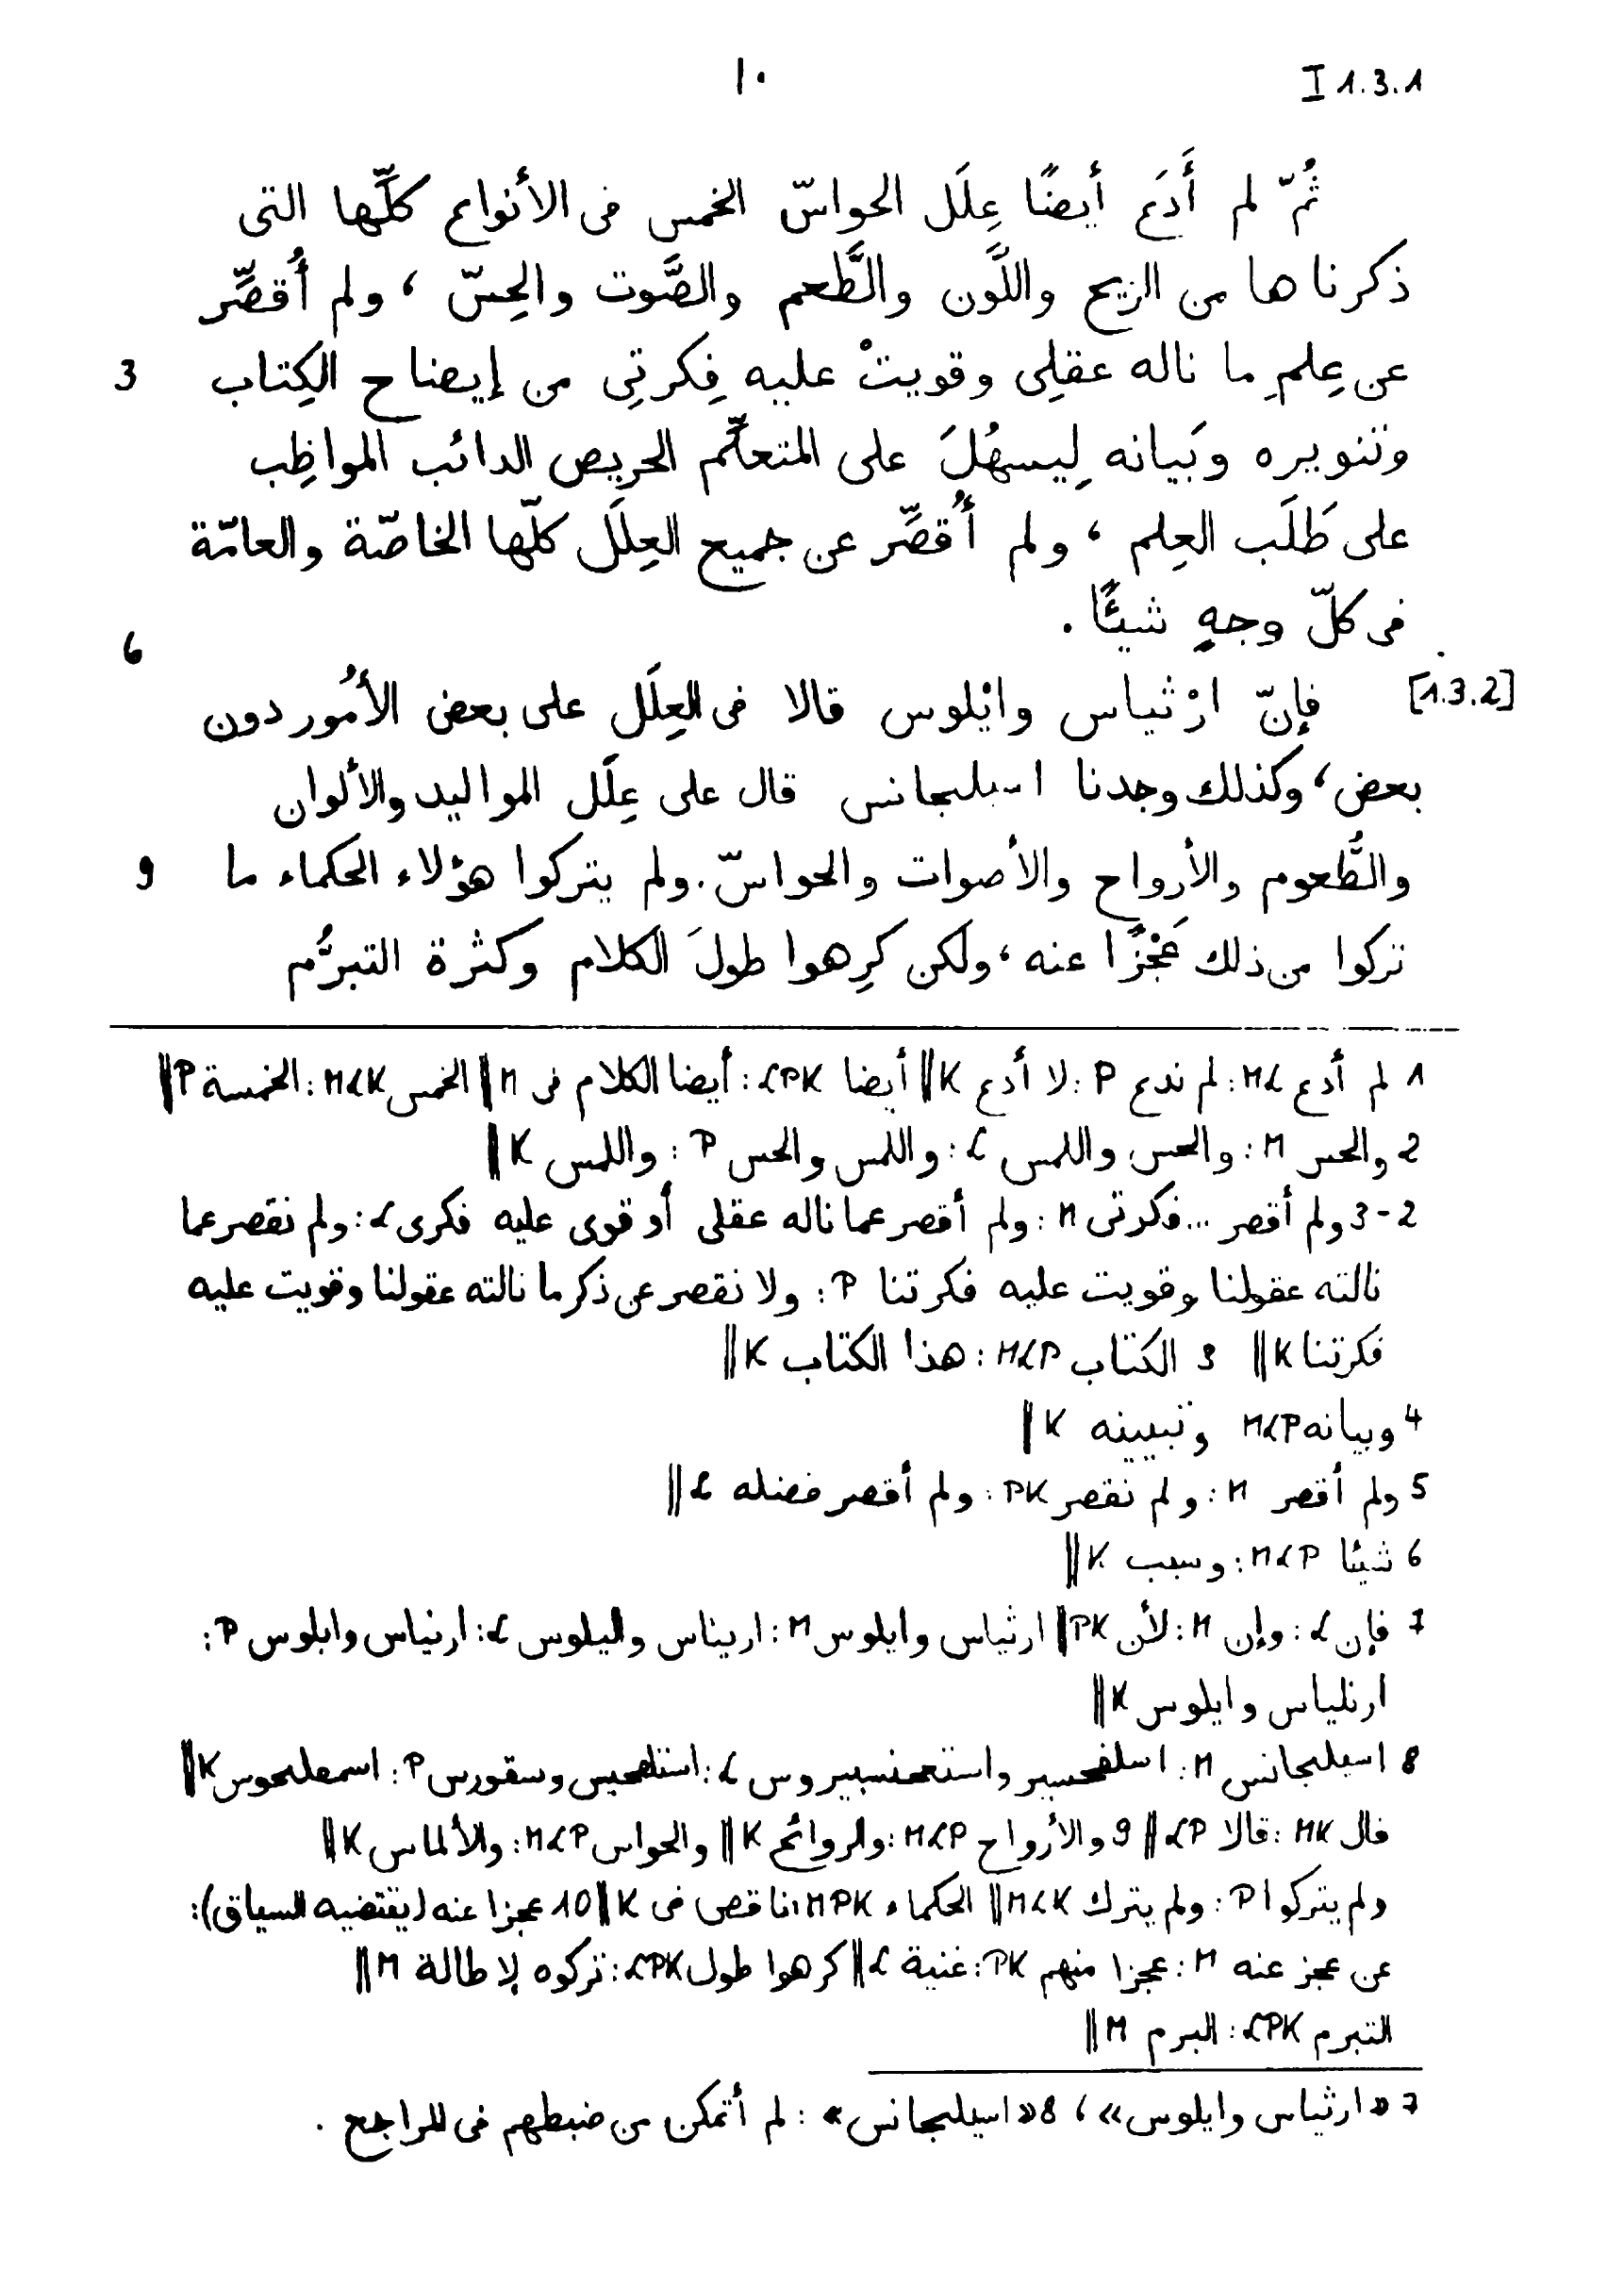 ١٠
I 1.3.1
ثُمّ لم أَدَع أيضًا عِلَل الحواسّ الخمس فى الأنواع كلِّها التى
ذكرناها من الريح واللَّون والطَّعم والصَّوت والحِسّ ، ولم أُقصِّر
عن عِلمِ ما ناله عقلِى وقويتْ عليه فِكرتِى من إيضاح الكِتاب 3
وتنويره وبَيانه لِيسهُلَ على المتعلِّم الحريص الدائب المواظِب
على طَلَب العِلم ، ولم أُقصِّر عن جميع العِلَل كلّها الخاصّة والعامّة
فى كلّ وجهٍ شيئًا . 6
[1.3.2] فإنّ ارْثياس وايْلوس قالا فى العِلَل على بعض الأُمُور دون
بعض ، وكذلك وجدنا اسيليجانس قال على عِلَل المواليد والألوان
والطُّعوم والأرواح والأصوات والحواسّ . ولم يتركوا هؤلاء الحكماء ما 9
تركوا من ذلك عَجْزًا عنه ، ولكن كرِهوا طولَ الكلام وكثرة التبرُّم
1 لم أدع ML : لم ندع P : لا أدع K || أيضا LPK : أيضا الكلام فى M || الخمس MLK : الخمسة P ||
2 والحس M : والحس واللمس L : واللمس والحس P : واللمس K ||
2-3 ولم أقصر ... فكرتى M : ولم أقصر عما ناله عقلى أو قوى عليه فكرى L : ولم نقصر عما
نالته عقولنا وقويت عليه فكرتنا P : ولا نقصر عن ذكر ما نالته عقولنا وقويت عليه
فكرتنا K || 3 الكتاب MLP : هذا الكتاب K ||
4 وبيانه MLP وتبيينه K ||
5 ولم أقصر M : ولم نقصر PK : ولم أقصر فضله L ||
6 شيئا MLP : وسبب K ||
7 فإن L : وإن M : لأن PK || ارثياس وايلوس M : اريناس واليلوس L : ارنياس وابلوس P :
ارنلياس وايلوس K ||
8 اسيليجانس M : L : وسقورس P : K ||
قال MK : قالا LP || 9 والأرواح MLP : والروائح K || والحواس MLP : والألماس K ||
ولم يتركوا P : ولم يترك MLK || الحكماء MPK : ناقص فى K || 10 عجزا عنه (يقتضيه السياق) :
عن عجز عنه M : عجزا منهم PK : غنية L || كرهوا طول LPK : تركوه لإطالة M ||
التبرم LPK : البرم M ||
7 «ارثياس وايلوس» ، 8 «اسيليجانس» : لم أتمكن من ضبطهم فى المراجع .